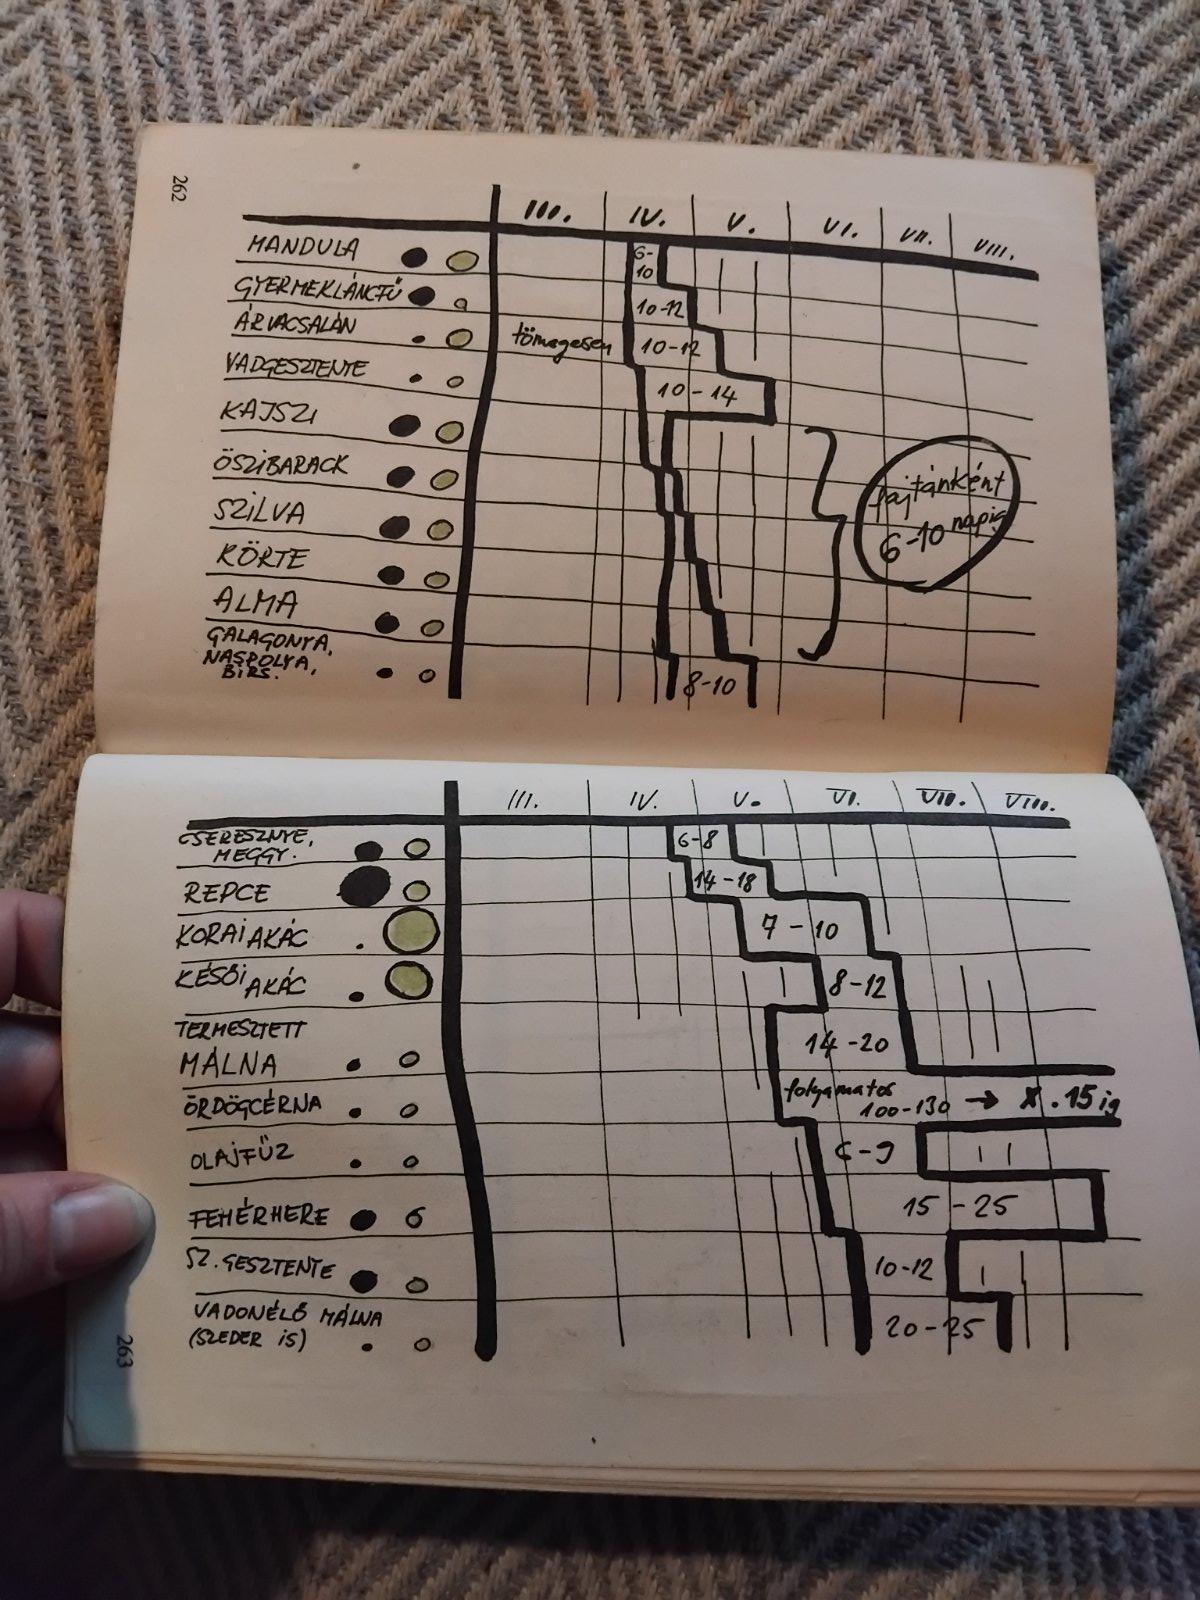 262
III. IV. V. VI. VII. VIII.
MANDULA 6-
10
GYERMEKLÁNCFŰ 10-12
ÁRVACSALÁN tömegesen 10-12
VADGESZTENYE 10-14
KAJSZI
ŐSZIBARACK
fajtánként
6-10 napig
SZILVA
KÖRTE
ALMA
GALAGONYA,
NASPOLYA,
BIRS. 8-10
III. IV. V. VI. VII. VIII.
CSERESZNYE,
MEGGY. 6-8
REPCE 14-18
KORAI AKÁC 7-10
KÉSŐI AKÁC 8-12
TERMESZTETT
MÁLNA 14-20
ÖRDÖGCÉRNA folyamatos
100-130 → X.15ig
OLAJFŰZ 6-9
FEHÉRHERE 15-25
SZ.GESZTENYE 10-12
VADONÉLŐ MÁLNA
(SZEDER IS) 20-25
263